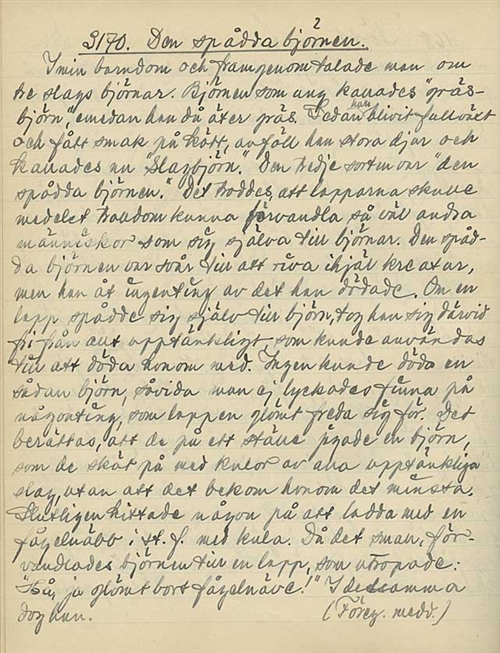 3170. Den spådda björnen.
I min barndom och framgenom talade man om
tre slags björnar. Björnen som ung kallades "gräs-
björn," emedan han då äter gräs. Sedan han blivit fullväxt
och fått smak på kött, anföll han stora djur och
kallades nu "Slagbjörn." Den tredje sorten var "den
spådda björnen." Det troddes, att lapparna skulle
medelst trolldom kunna förvandla så väl andra
människor som sig själva till björnar. Den spåd-
da björnen var svår till att riva ihjäl kreatur,
men han åt ingenting av det han dödade. Om en
lapp spådde sig själv till björn, tog han sig därvid
fri från allt upptänkligt, som kunde användas
till att döda honom med. Ingen kunde döda en
sådan björn, såvida man ej lyckades finna på
någonting, som lappen glömt freda sig för. Det
berättas, att de på ett ställe jagade en björn,
som de sköt på med kulor av alla upptänkliga
slag, utan att det bekom honom det minsta.
Slutligen hittade någon på att ladda med en
fågelnäbb i st. f. med kula. Då det small, för-
vandlades björnen till en lapp, som utropade:
ja glömt bort fågelnäve!" I detsamma
dog han. (Föreg. medd.)